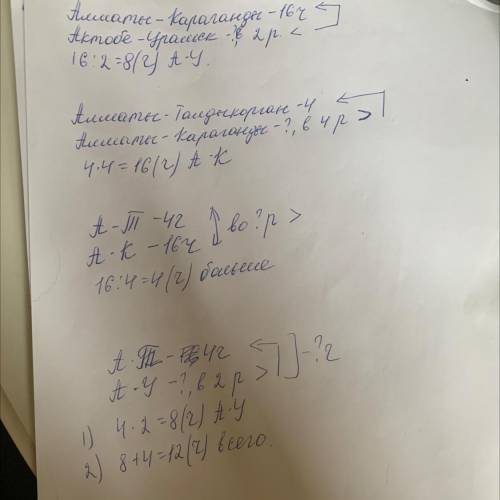 Алматы-Караганды-16ч
Актобе-Уральск-?, в 2 р. <
16:2=8(ч) А-У.
Алматы-Талдыкорган-4
Алматы-Караганды-?, в 4 р >
4·4=16(ч) А-К
А-Т -4ч
А-К -16ч во ? р >
16:4=4(ч) больше
А-Т- 4ч
А-У -?, в 2 р > -?ч
1) 4·2=8(ч) А-У
2) 8+4=12(ч) всего.